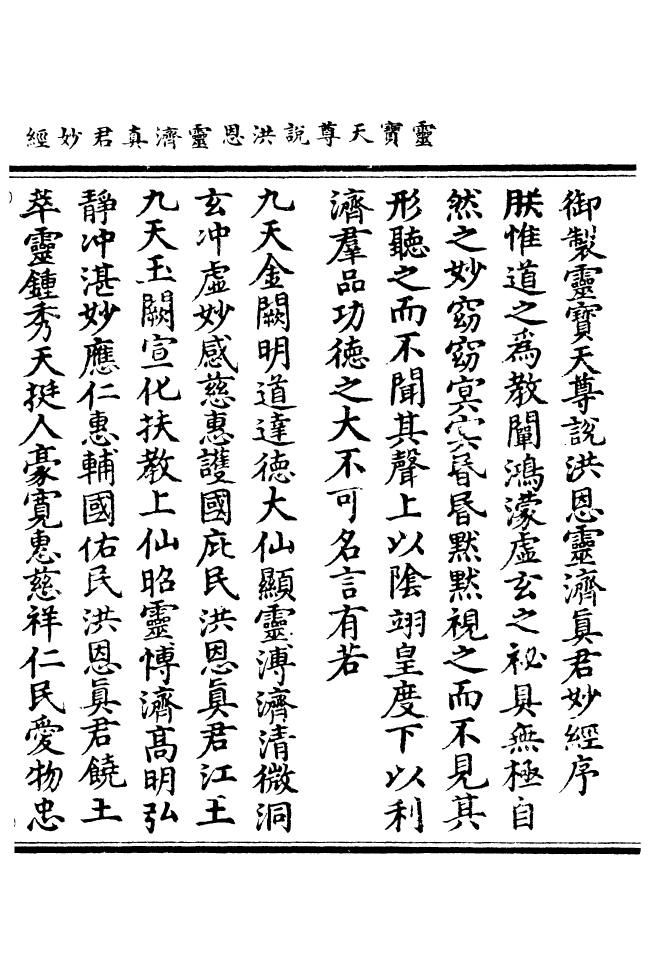 靈寶天尊說洪恩靈濟真君妙經
御製靈寶天尊說洪恩靈濟眞君妙經序
朕惟道之爲教闡鴻濛虛玄之祕具無極自
然之妙窈窈冥冥昏昏默默視之而不見其
形聽之而不聞其聲上以陰翊皇度下以利
濟羣品功德之大不可名言有若
九天金闕明道達德大仙顯靈溥濟清微洞
玄冲虛妙感慈惠護國庇民洪恩眞君江王
九天玉闕宣化扶教上仙昭靈愽濟高明弘
靜冲湛妙應仁惠輔國佑民洪恩眞君饒王
萃靈鍾秀天挺人豪寬惠慈祥仁民愛物忠